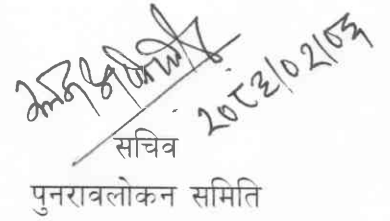 २०८३/०२/०६
सचिव
पुनरावलोकन समिति